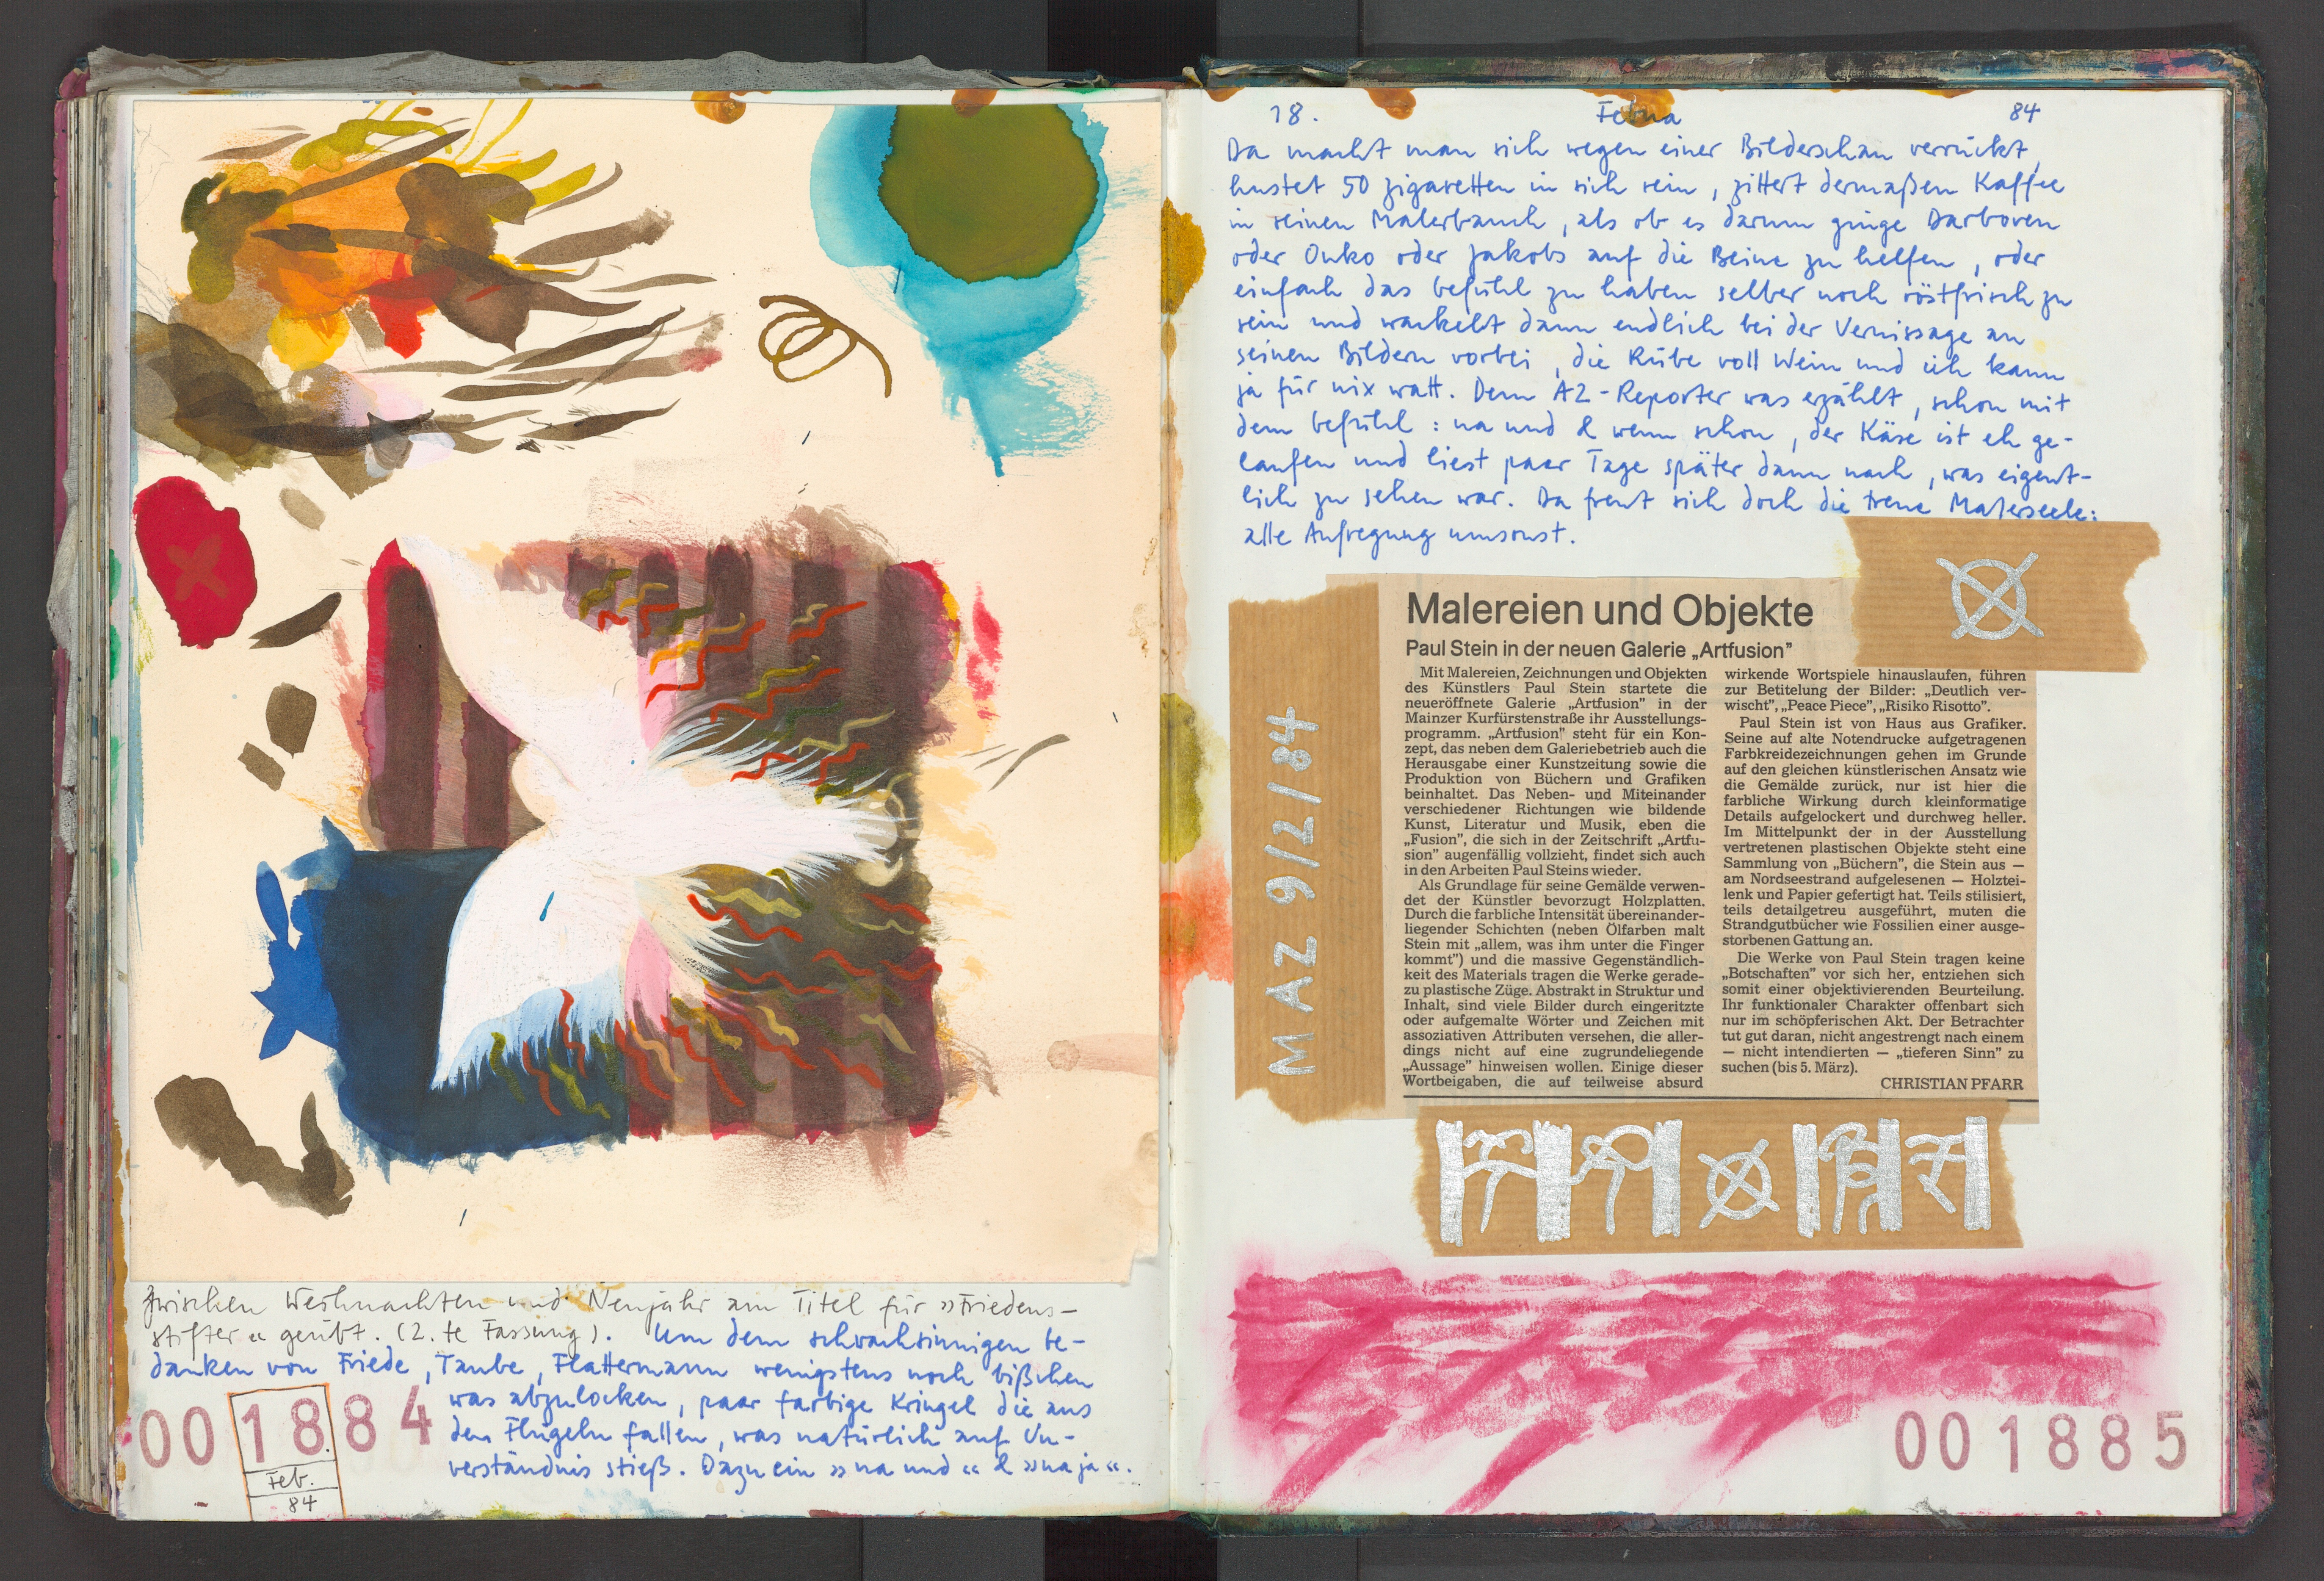 Zwischen Weihnachten und Neujahr am Titel für »Friedens-
stifter« geübt. (2.te Fassung). Um dem schwachsinnigen Ge-
danken von Friede, Taube, Flattermann wenigstens noch bißchen
was abzulocken, paar farbige Kringel die aus
den Flügeln fallen, was natürlich auf Un-
verständnis stieß. Dazu ein »na und« & »na ja«.
001884
Feb.
84
18. Febra 84
Da macht man sich wegen einer Bilderschau verrückt,
hustet 50 Zigaretten in sich rein, zittert dermaßen Kaffee
in seinen Malerbauch, als ob es darum ginge Darboven
oder Onko oder Jakobs auf die Beine zu helfen, oder
einfach das Gefühl zu haben selber noch röstfrisch zu
sein und wackelt dann endlich bei der Vernissage an
seinen Bildern vorbei, die Rübe voll Wein und ich kann
ja für nix watt. Dem AZ-Reporter was erzählt, schon mit
dem Gefühl: na und & wenn schon, der Käse ist eh ge-
laufen und liest paar Tage später dann nach, was eigent-
lich zu sehen war. Da freut sich doch die treue Malerseele:
alle Aufregung umsonst.
MAZ 9/2/84
Malereien und Objekte
Paul Stein in der neuen Galerie „Artfusion”
Mit Malereien, Zeichnungen und Objekten
des Künstlers Paul Stein startete die
neueröffnete Galerie „Artfusion” in der
Mainzer Kurfürstenstraße ihr Ausstellungs-
programm. „Artfusion” steht für ein Kon-
zept, das neben dem Galeriebetrieb auch die
Herausgabe einer Kunstzeitung sowie die
Produktion von Büchern und Grafiken
beinhaltet. Das Neben- und Miteinander
verschiedener Richtungen wie bildende
Kunst, Literatur und Musik, eben die
„Fusion”, die sich in der Zeitschrift „Artfu-
sion” augenfällig vollzieht, findet sich auch
in den Arbeiten Paul Steins wieder.
Als Grundlage für seine Gemälde verwen-
det der Künstler bevorzugt Holzplatten.
Durch die farbliche Intensität übereinander-
liegender Schichten (neben Ölfarben malt
Stein mit „allem, was ihm unter die Finger
kommt”) und die massive Gegenständlich-
keit des Materials tragen die Werke gerade-
zu plastische Züge. Abstrakt in Struktur und
Inhalt, sind viele Bilder durch eingeritzte
oder aufgemalte Wörter und Zeichen mit
assoziativen Attributen versehen, die aller-
dings nicht auf eine zugrundeliegende
„Aussage” hinweisen wollen. Einige dieser
Wortbeigaben, die auf teilweise absurd
wirkende Wortspiele hinauslaufen, führen
zur Betitelung der Bilder: „Deutlich ver-
wischt”, „Peace Piece”, „Risiko Risotto”.
Paul Stein ist von Haus aus Grafiker.
Seine auf alte Notendrucke aufgetragenen
Farbkreidezeichnungen gehen im Grunde
auf den gleichen künstlerischen Ansatz wie
die Gemälde zurück, nur ist hier die
farbliche Wirkung durch kleinformatige
Details aufgelockert und durchweg heller.
Im Mittelpunkt der in der Ausstellung
vertretenen plastischen Objekte steht eine
Sammlung von „Büchern”, die Stein aus —
am Nordseestrand aufgelesenen — Holztei-
lenk und Papier gefertigt hat. Teils stilisiert,
teils detailgetreu ausgeführt, muten die
Strandgutbücher wie Fossilien einer ausge-
storbenen Gattung an.
Die Werke von Paul Stein tragen keine
„Botschaften” vor sich her, entziehen sich
somit einer objektivierenden Beurteilung.
Ihr funktionaler Charakter offenbart sich
nur im schöpferischen Akt. Der Betrachter
tut gut daran, nicht angestrengt nach einem
— nicht intendierten — „tieferen Sinn” zu
suchen (bis 5. März).
CHRISTIAN PFARR
001885